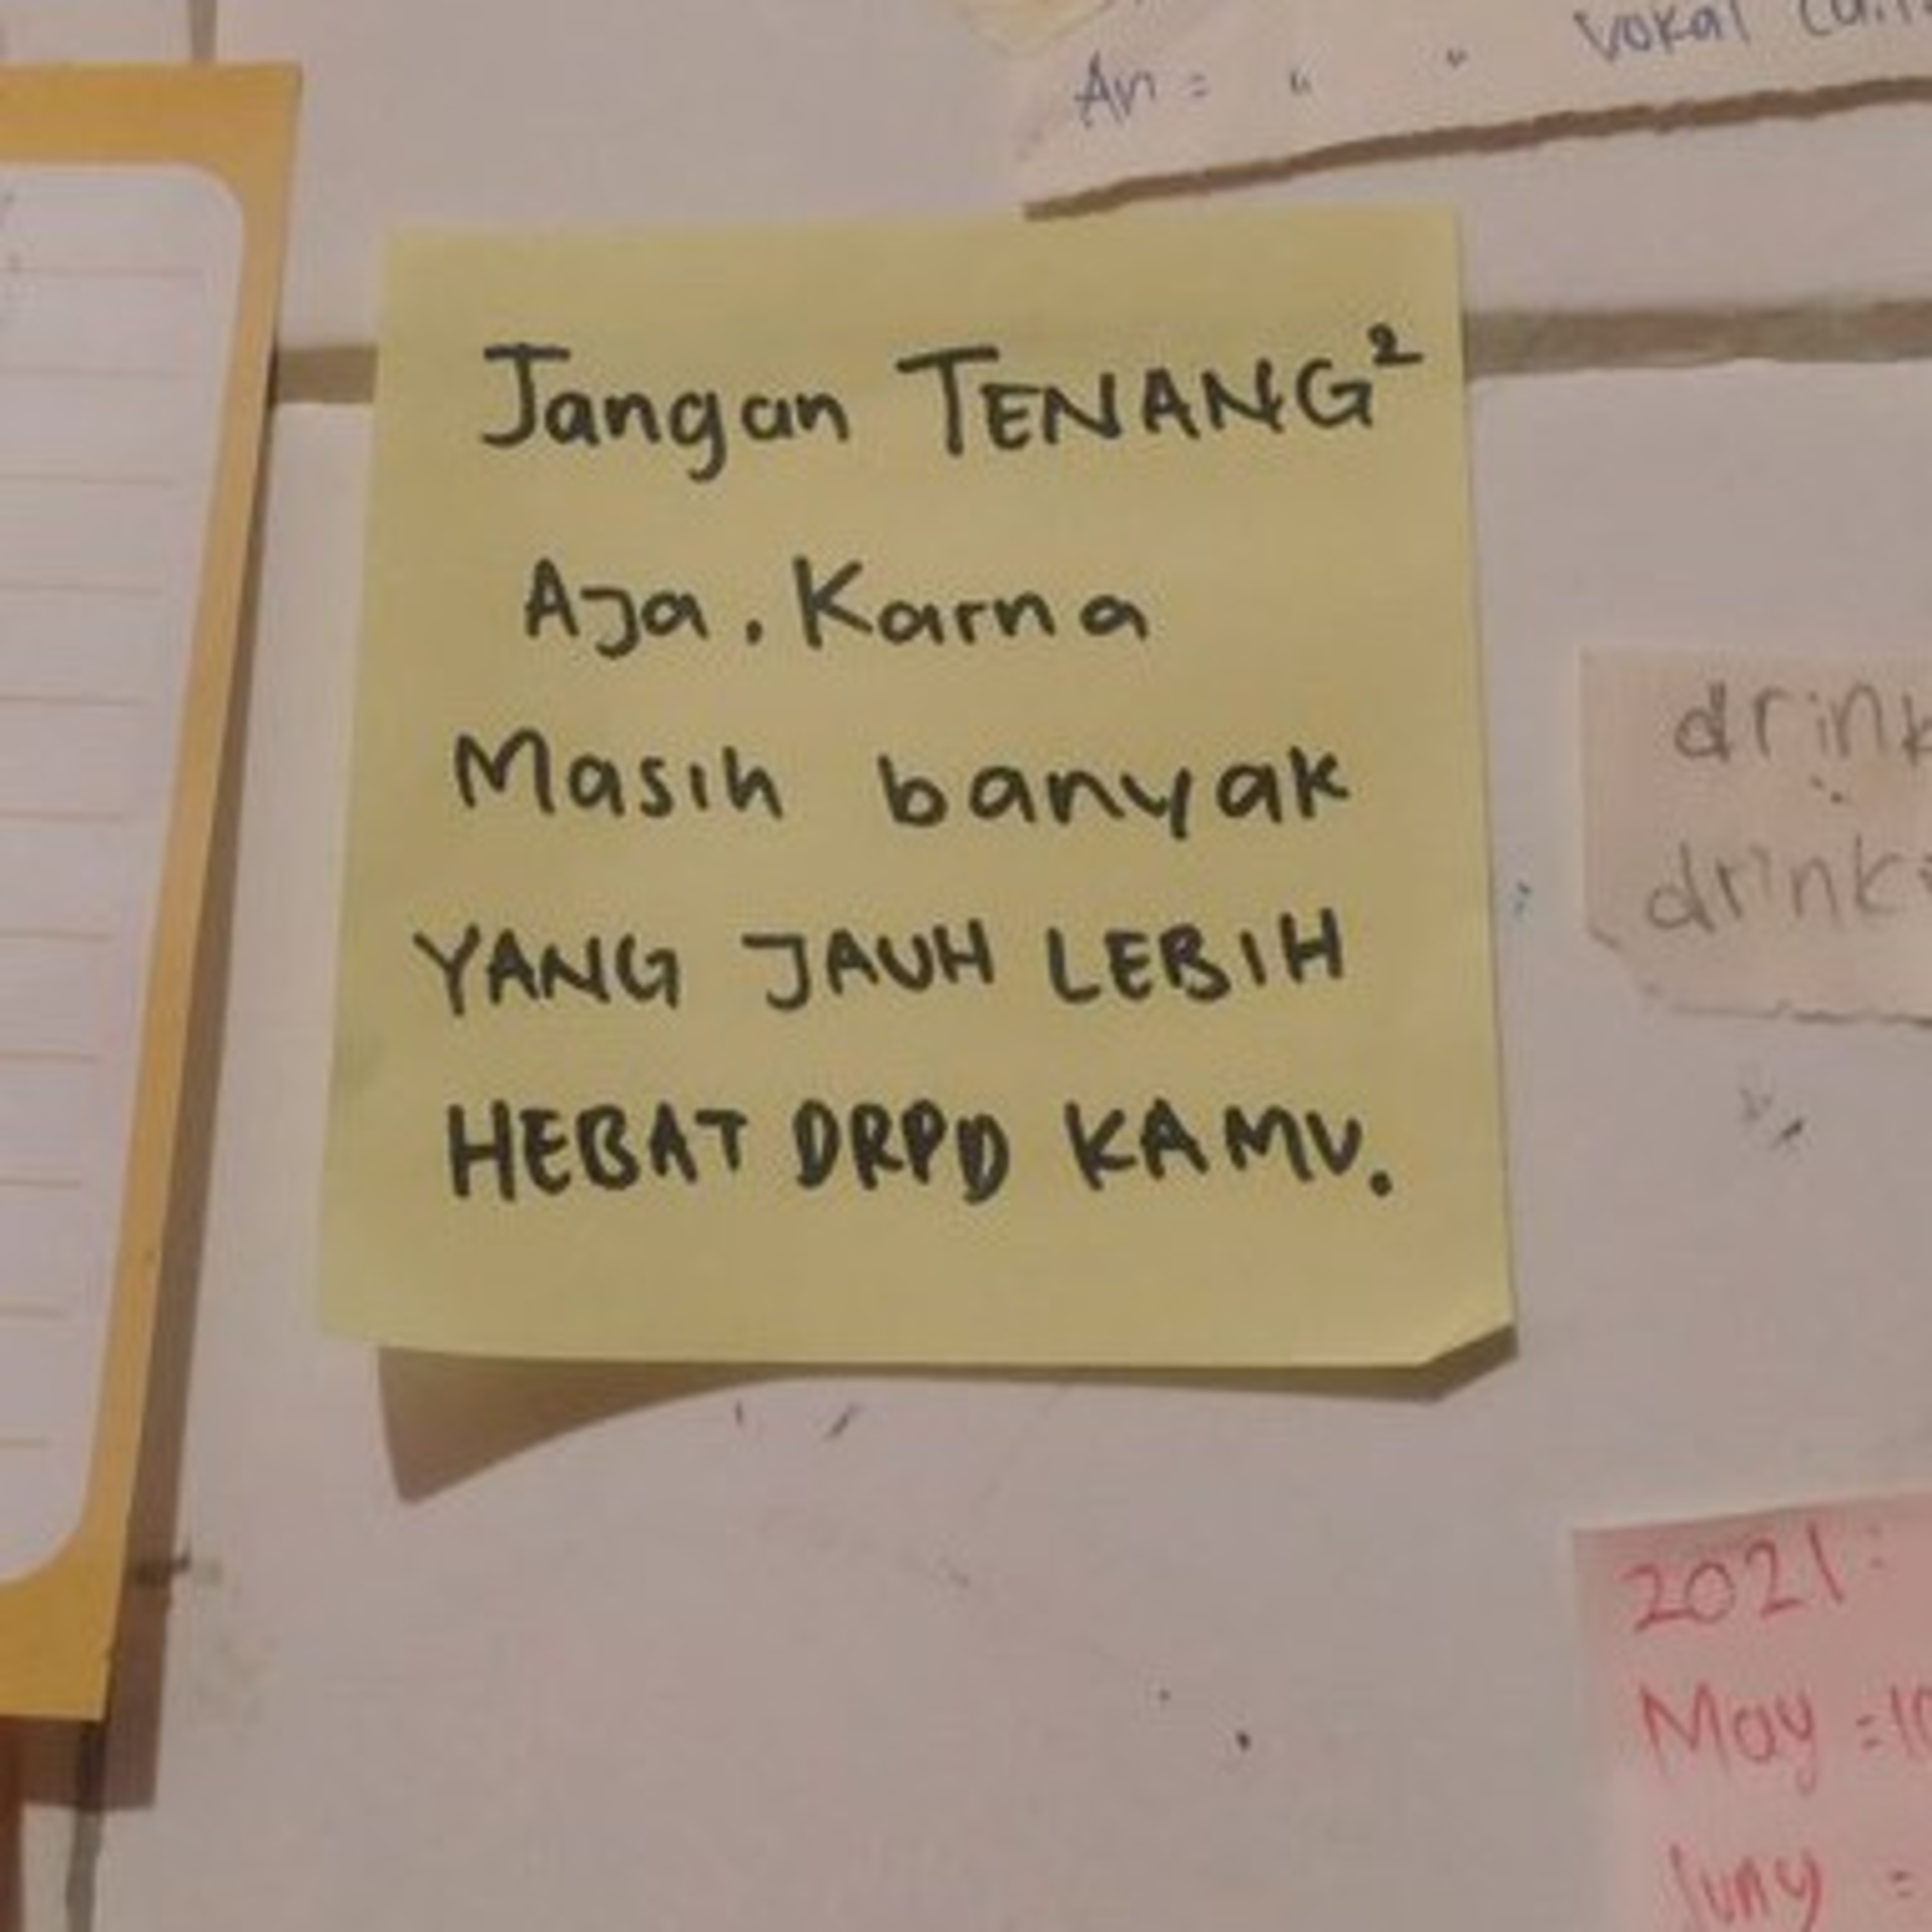 An = " " vokal
Jangan TENANG²
Aja. Karna
Masih banyak
YANG JAUH LEBIH
HEBAT DRPD KAMU.
drink
drink
2021:
May =10
Juny =